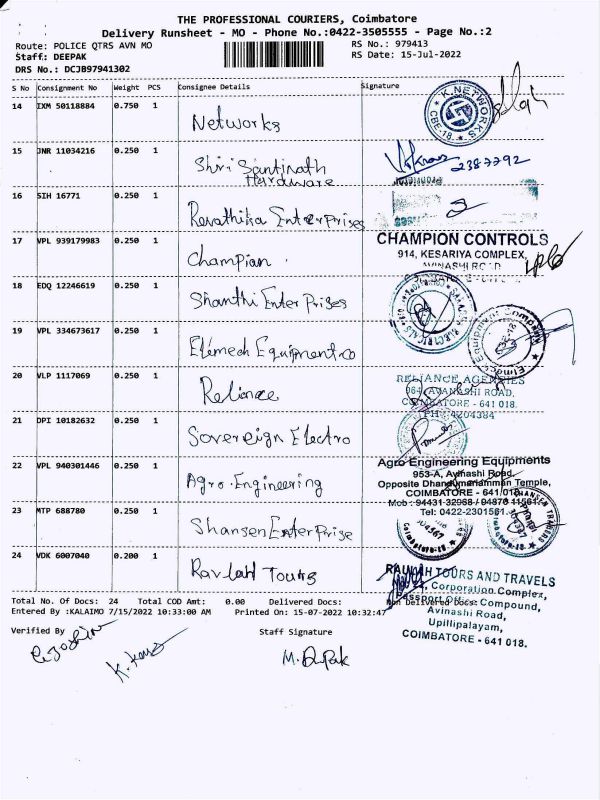 THE PROFESSIONAL COURIERS, Coimbatore
Delivery Runsheet - MO - Phone No.:0422-3505555 - Page No.:2
Route: POLICE QTRS AVN MO
RS No.: 979413
Staff: DEEPAK
RS Date: 15-Jul-2022
DRS No.: DCJB97941302
S No Consignment No Weight PCS Consignee Details Signature
14 IXM 50118884 0.750 1 Networks
K.NETWORKS CBE-18
15 JNR 11034216 0.250 1 Shri Santinath Hardware
2387792
16 SIH 16771 0.250 1 Revathika Enterprises
17 VPL 939179983 0.250 1 Champion
CHAMPION CONTROLS
914, KESARIYA COMPLEX,
18 EDQ 12246619 0.250 1 Shanthi Enterprises
19 VPL 334673617 0.250 1 Elemech Equipment co
20 VLP 1117069 0.250 1 Reliance
RELIANCE AGENCIES
964, AVANASHI ROAD,
COIMBATORE - 641 018.
PH: 4204384
21 DPI 10182632 0.250 1 Sovereign Electro
22 VPL 940301446 0.250 1 Agro. Engineering
Agro Engineering Equipments
953-A, Avinashi Road,
Opposite Dhandumariamman Temple,
COIMBATORE - 641 018.
Tel: 0422-2301561
23 MTP 688780 0.250 1 Shansen Enterprise
24 VDK 6007040 0.200 1 Raulah Tours
RAULAH TOURS AND TRAVELS
Corporation Complex,
Passport Office Compound,
Avinashi Road,
Upilipalayam,
COIMBATORE - 641 018.
Total No. Of Docs: 24 Total COD Amt: 0.00 Delivered Docs: Non Delivered Docs:
Entered By :KALAIMO 7/15/2022 10:33:00 AM Printed On: 15-07-2022 10:32:47
Verified By
Staff Signature
M. Deepak